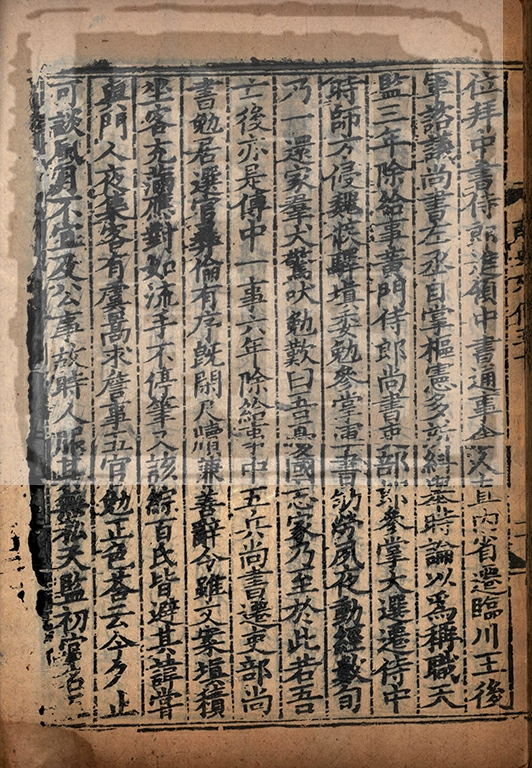 位拜中書侍郎進領中書通事舍人直內省遷臨川王後
軍諮議尚書左丞自掌樞憲多所糾舉時論以爲稱職天
監三年除給事黃門侍郎尚書吏部郎參掌大選遷侍中
時師方侵魏候驛填委勉參掌軍書劬勞夙夜動經數旬
乃一還家羣犬驚吠勉歎曰吾憂國忘家乃至於此若吾
亡後亦是傳中一事六年除給事中五兵尚書遷吏部尚
書勉居選官彝倫有序既閑尺牘兼善辭令雖文案填積
坐客充滿應對如流手不停筆又該綜百氏皆避其諱嘗
與門人夜集客有虞暠求詹事五官勉正色答云今夕止
可談風月不宜及公事故時人服其無私天監初官名